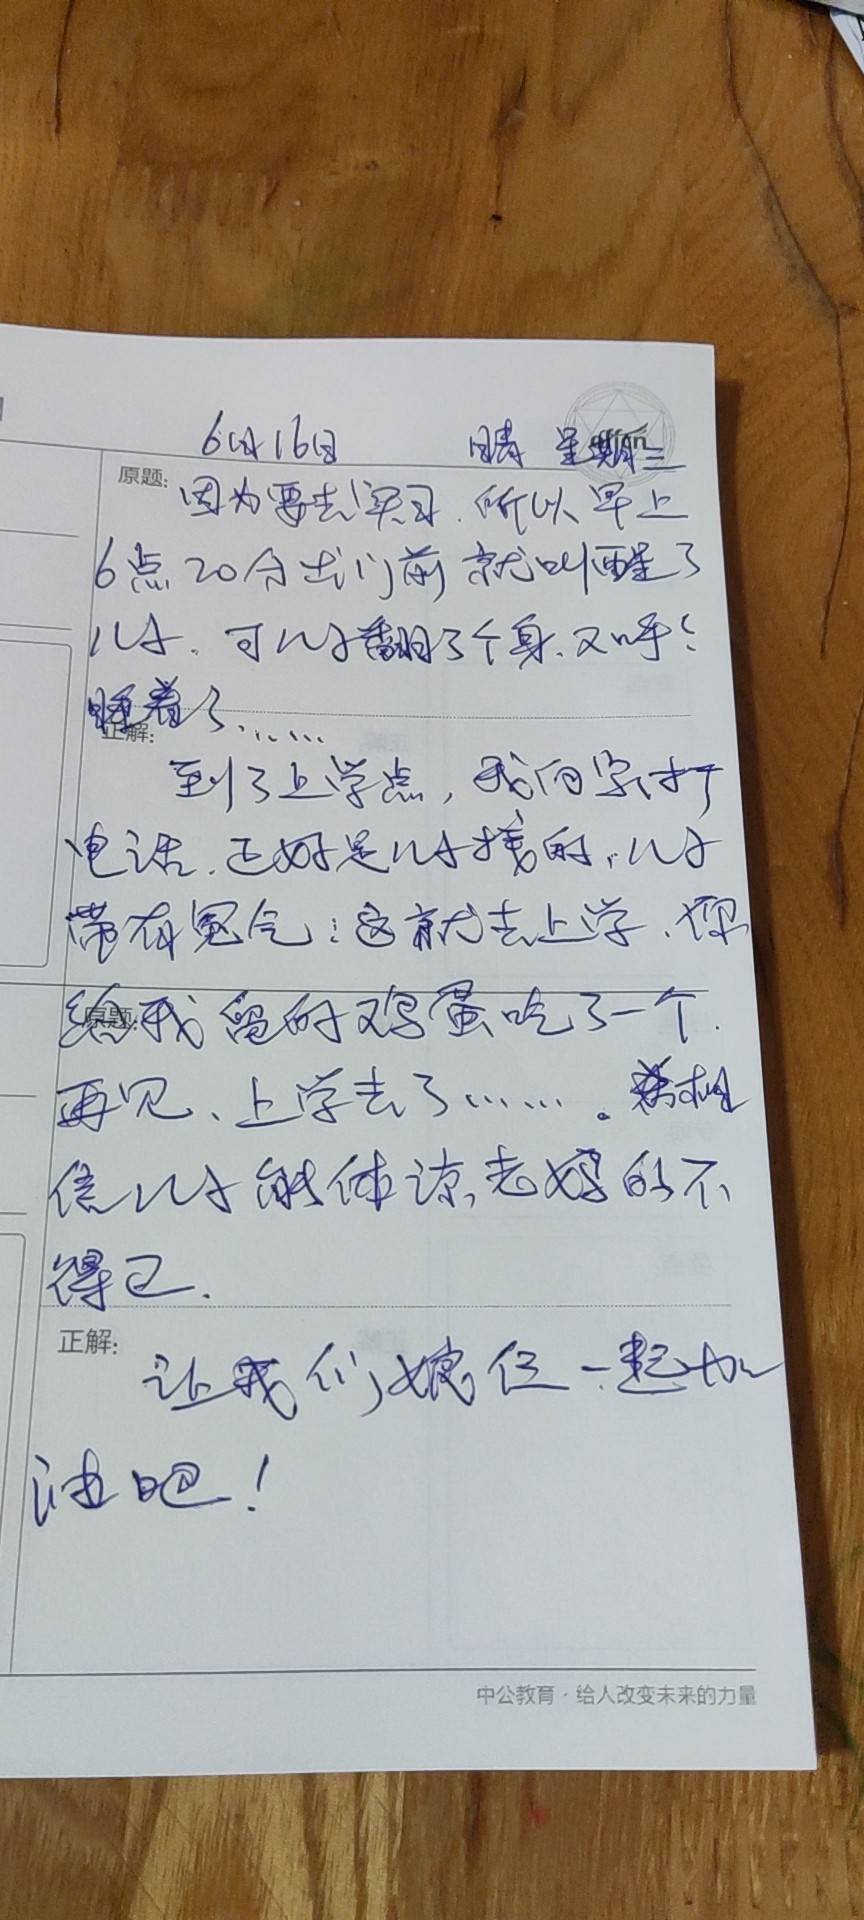 6月16日 晴 星期三
原题:
因为要去实习，所以早上
6点20分出门前就叫醒了
儿子，可儿子翻了个身，又呼呼
睡着了……
正解:
到了上学点，我向家打
电话，正好是儿子接的，儿子
带有冤气：这就去上学，你
给我留的鸡蛋吃了一个，
原题:
再见，上学去了……。相
信儿子能体谅老妈的不
得已.
正解:
让我们娘仨一起加
油吧！
中公教育·给人改变未来的力量